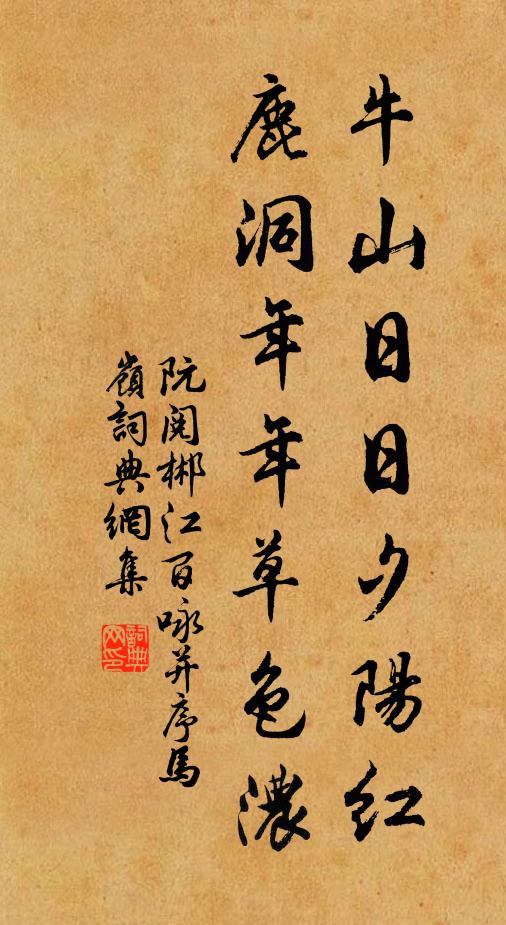 牛山日日夕陽紅
鹿洞年年草色濃
阮閱郴江百咏并序馬
嶺詞典網集
詞典
网印